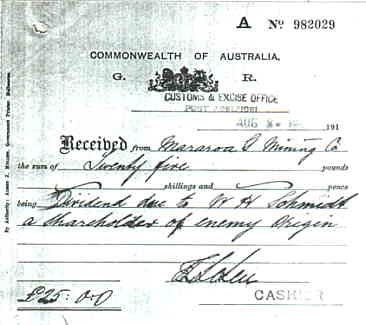 A No 982029
COMMONWEALTH OF AUSTRALIA.
G. R.
CUSTOMS & EXCISE OFFICE
PORT ADELAIDE
AUG 191
Received from Mararoa G Mining Co
the sum of Twenty five pounds
shillings and pence
being Dividend due to W H Schmidt
a shareholder of enemy origin
CASHIER
£25:0:0
By Authority: Government Printer, Melbourne.